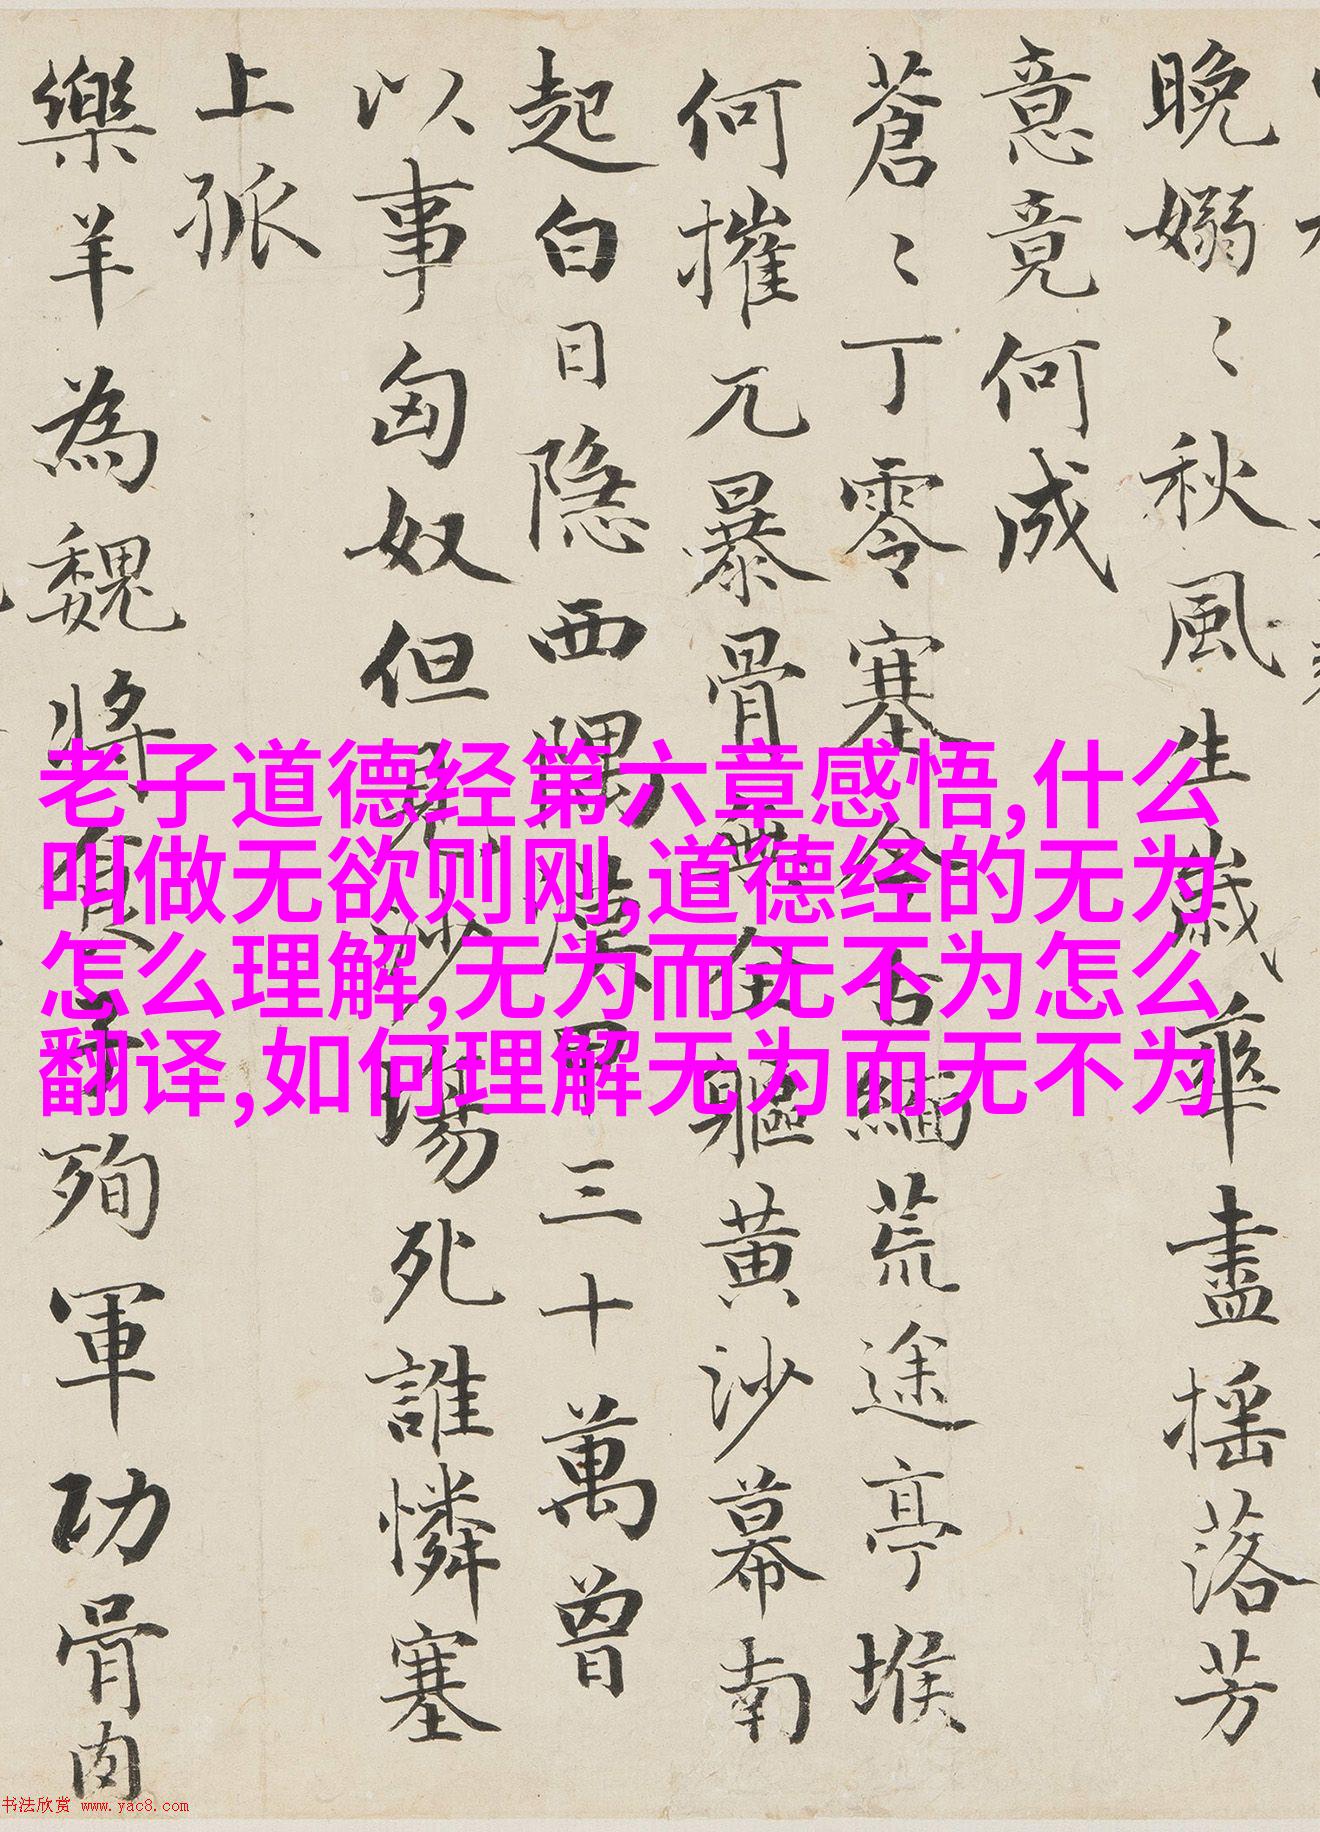 晚嫋〻秋風生歲華盡摇落芳
意竟何成
蒼〻丁零塞今古緬荒途亭堠
何摧兀暴骨無全軀黄沙幕南
起白日隐西隅漢甲三十萬曾
以事匈奴但見沙塲死誰憐塞
上孤
樂羊為魏將食子殉軍功骨肉
老子道德经第六章感悟,什么
叫做无欲则刚,道德经的无为
怎么理解,无为而无不为怎么
翻译,如何理解无为而无不为
书法欣赏 www.yac8.com